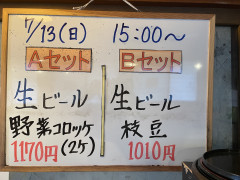 7/13(日) 15:00～
Aセット Bセット
生ビール 生ビール
野菜コロッケ 枝豆
(2ケ)
1170円 1010円